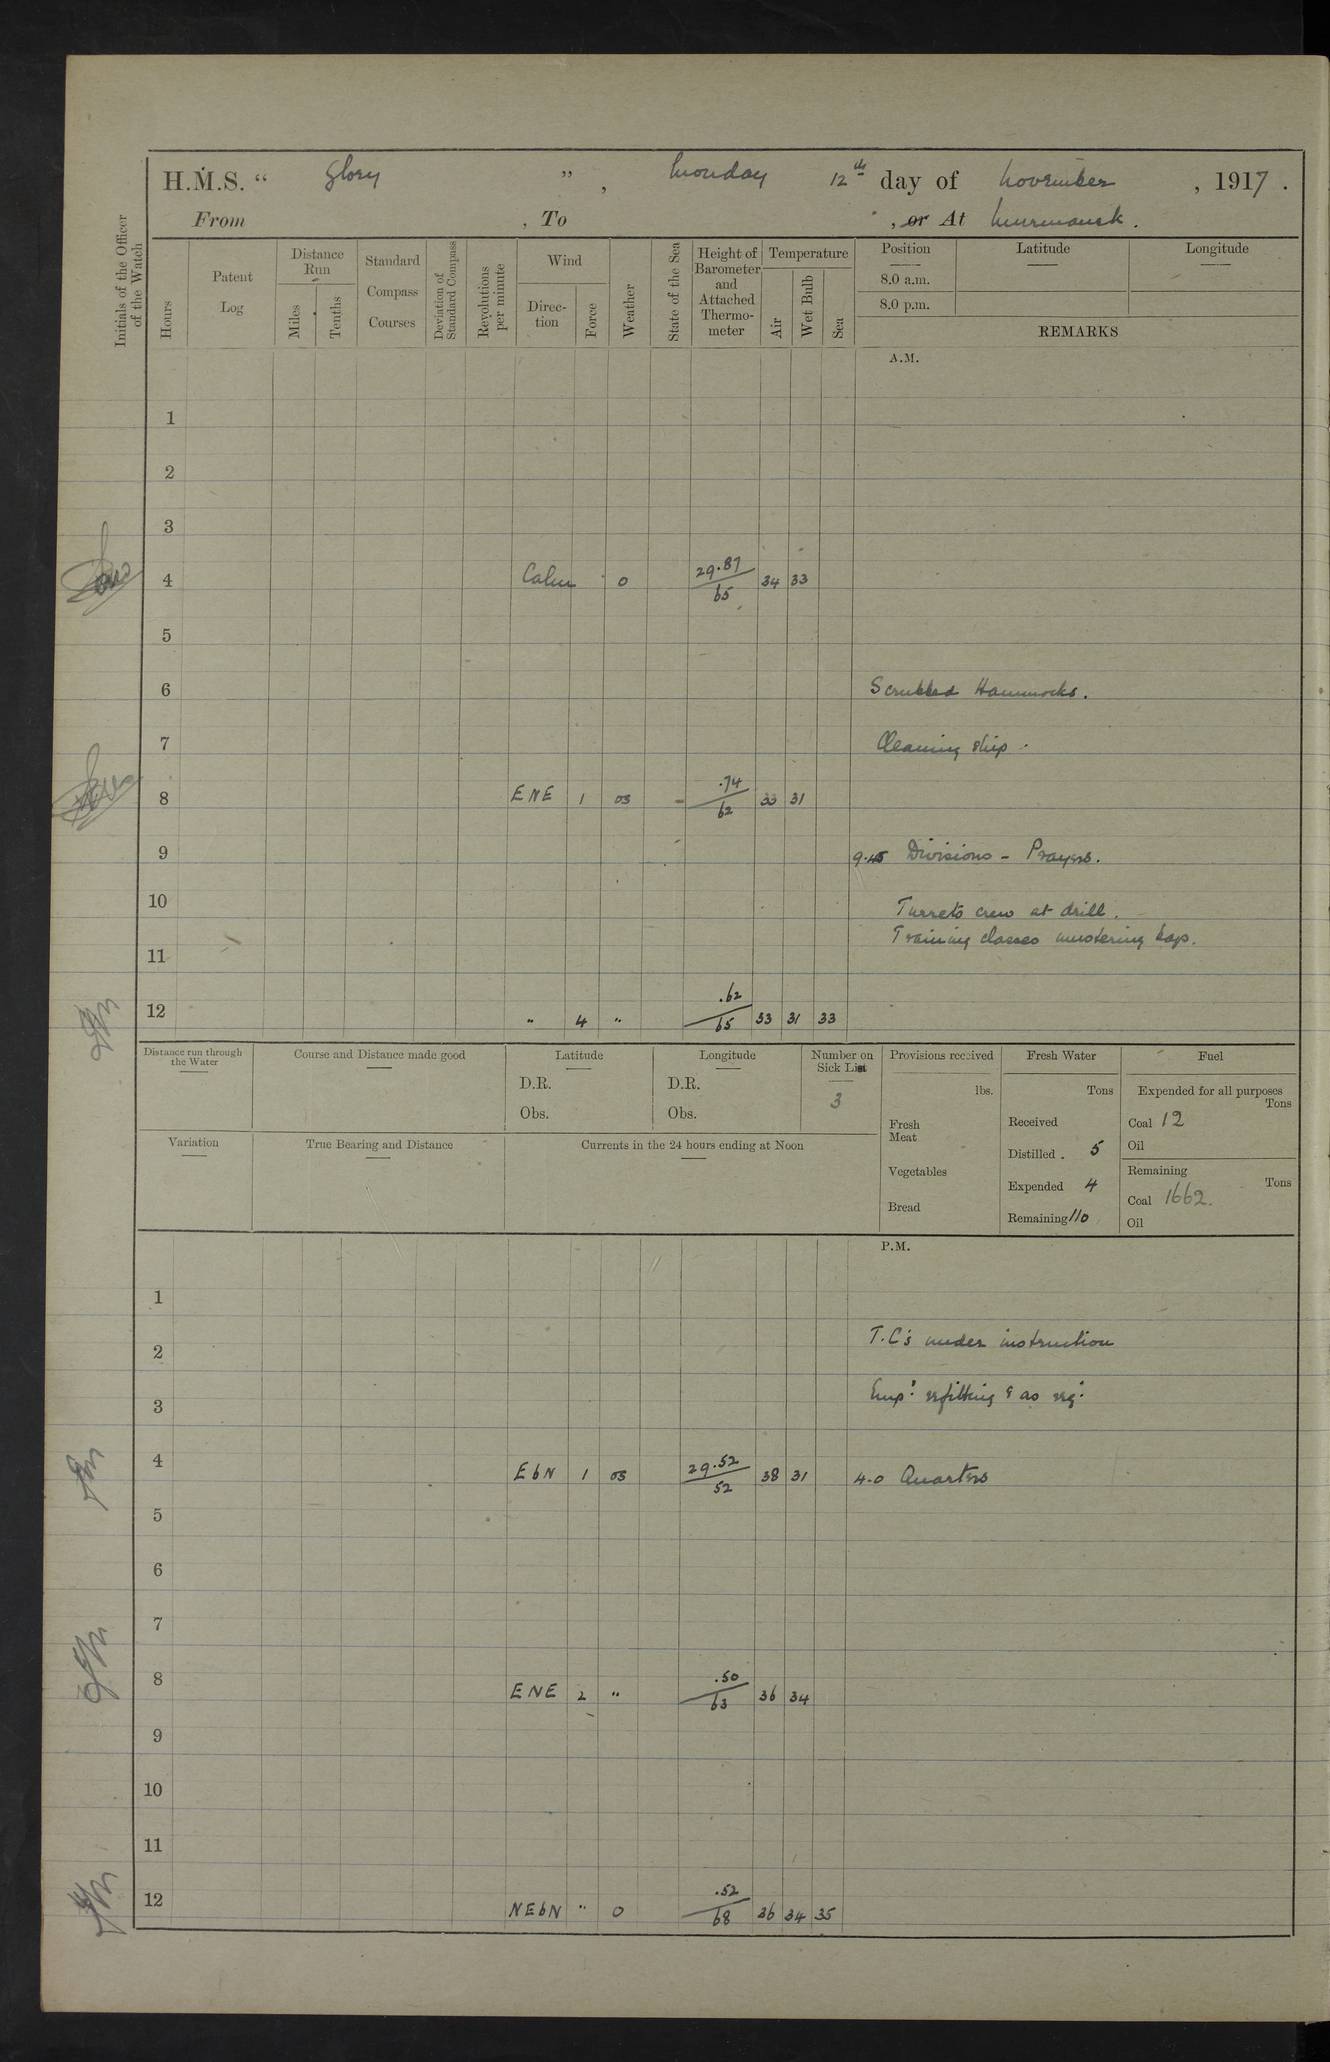 H.M.S. “ Glory ” , Monday 12th day of November , 1917 .
From , To , or At Murmansk .
Initials of the Officer of the Watch
Hours
Patent Log
Distance Run
Miles
Tenths
Standard Compass Courses
Deviation of Standard Compass
Revolutions per minute
Wind
Direc-tion
Force
Weather
State of the Sea
Height of Barometer and Attached Thermo-meter
Temperature
Air
Wet Bulb
Sea
Position Latitude Longitude
8.0 a.m.
8.0 p.m.
REMARKS
A.M.
1
2
3
4 Calm 0 29.87/65 34 33
5
6 Scrubbed Hammocks.
7 Cleaning ship.
8 ENE 1 os .74/62 33 31
9 9.45 Divisions - Prayers.
10 Turrets crew at drill.
Training classes mustering bags.
11
12 " 4 " .62/65 33 31 33
Distance run through the Water
Course and Distance made good
Latitude
D.R.
Obs.
Longitude
D.R.
Obs.
Number on Sick List
3
Provisions received
lbs.
Fresh Meat
Vegetables
Bread
Fresh Water
Tons
Received
Distilled . 5
Expended 4
Remaining 110
Fuel
Expended for all purposes
Tons
Coal 12
Oil
Remaining
Tons
Coal 1662.
Oil
Variation
True Bearing and Distance
Currents in the 24 hours ending at Noon
P.M.
1
2 T.C's under instruction
3 Empd refitting & as reqd
4 EbN 1 os 29.52/52 38 31 4.0 Quarters
5
6
7
8 ENE 2 " .50/63 36 34
9
10
11
12 NEbN " 0 .52/68 36 34 35